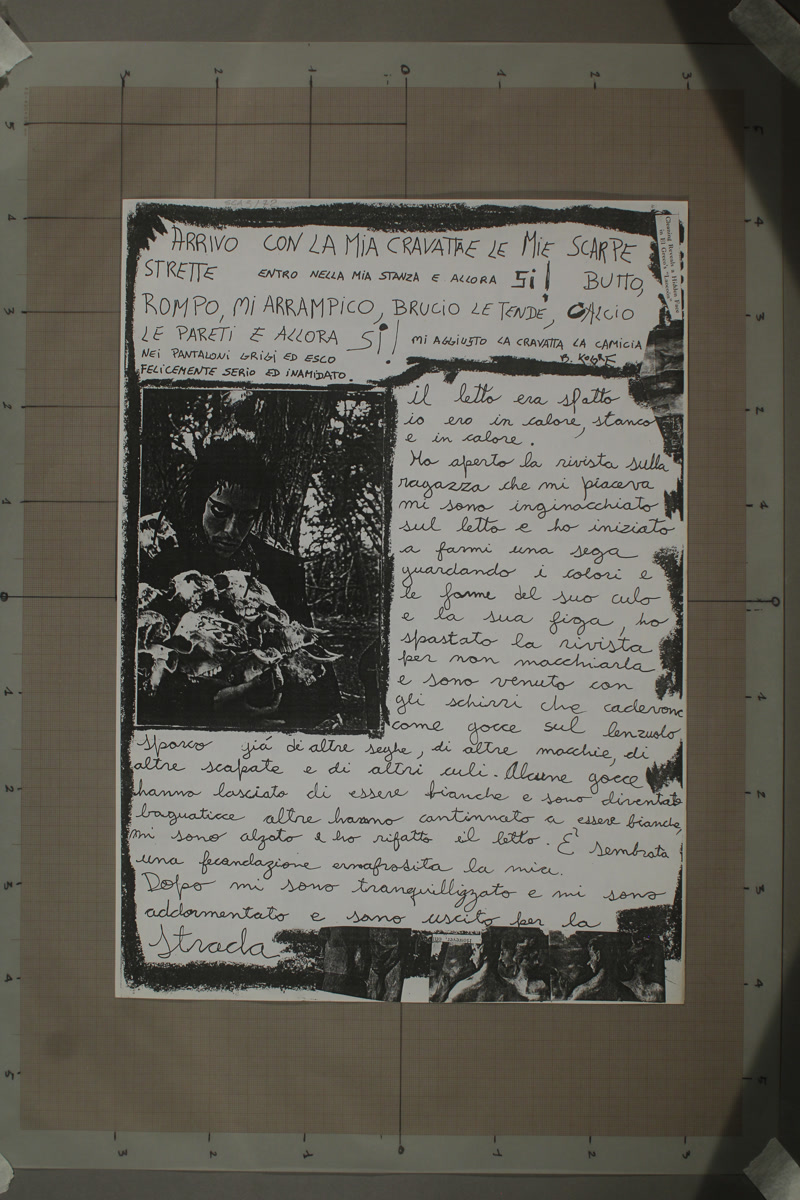 ARRIVO CON LA MIA CRAVATTA E LE MIE SCARPE
STRETTE ENTRO NELLA MIA STANZA E ALLORA SI! BUTTO,
ROMPO, MI ARRAMPICO, BRUCIO LE TENDE, CALCIO
LE PARETI E ALLORA SI! MI AGGIUSTO LA CRAVATTA LA CAMICIA
NEI PANTALONI GRIGI ED ESCO
FELICEMENTE SERIO ED INAMIDATO.
Cleaning Reveals a Hidden Face
in El Greco's "Laocoön"
il letto era sfatto
io ero in calore, stanco
e in calore.
Ho aperto la rivista sulla
ragazza che mi piaceva
mi sono inginocchiato
sul letto e ho iniziato
a farmi una sega
guardando i colori e
le forme del suo culo
e la sua figa, ho
spostato la rivista
per non macchiarla
e sono venuto con
gli schizzi che cadevano
come gocce sul lenzuolo
sporco giá di altre seghe, di altre macchie, di
altre scopate e di altri culi. Alcune gocce
hanno lasciato di essere bianche e sono diventate
baguaticce altre hanno continuato a essere bianche,
mi sono alzato e ho rifatto il letto. È sembrata
una fecondazione ermafrodita la mia.
Dopo mi sono tranquillizzato e mi sono
addormentato e sono uscito per la
strada
3 2 1 0 1 2 3
5 4 3 2 1 0 1 2 3 4 5